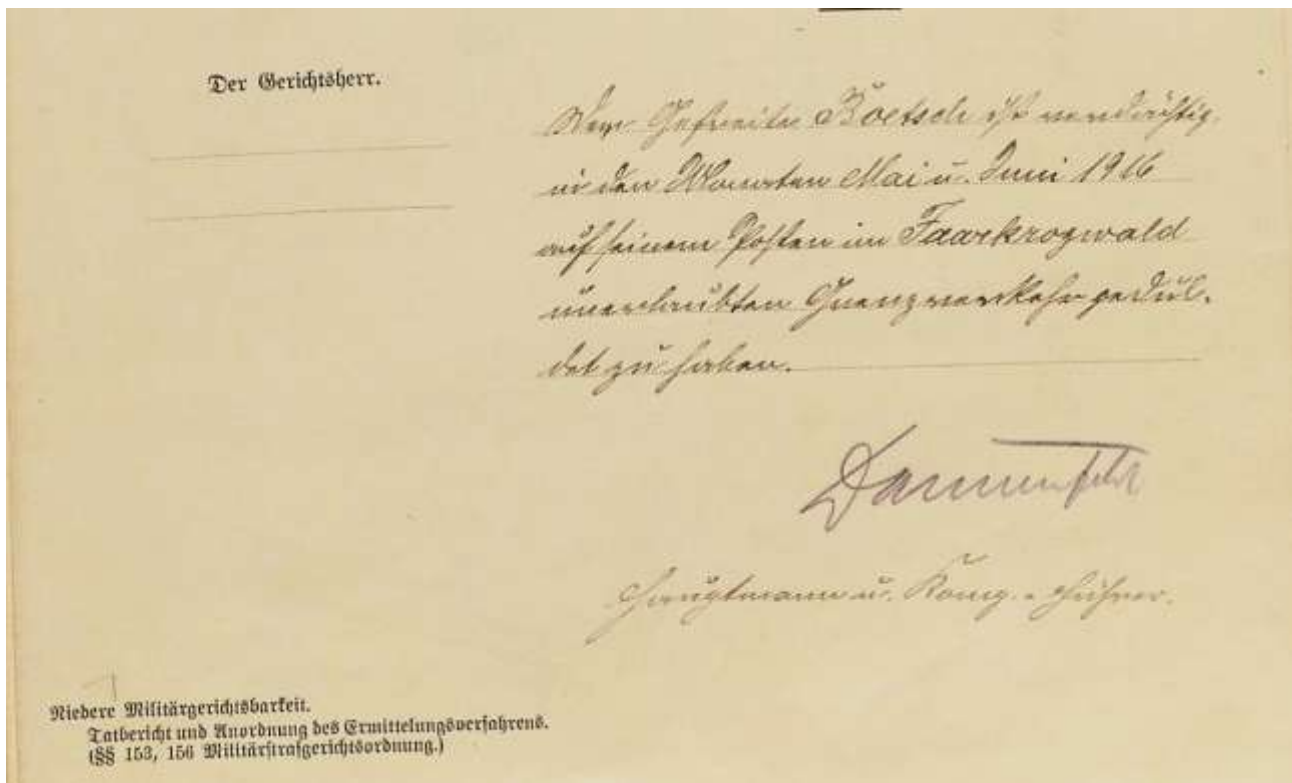 Der Gerichtsherr.
Der Gefreite Boetsch ist verdächtig,
in den Monaten Mai u. Juni 1916
auf seinem Posten im Faarkrogwald
unerlaubten Grenzverkehr gedul-
det zu haben.
Hauptmann u. Komp.-Führer.
Niedere Militärgerichtsbarkeit.
Tatbericht und Anordnung des Ermittelungsverfahrens.
(§§ 153, 156 Militärstrafgerichtsordnung.)